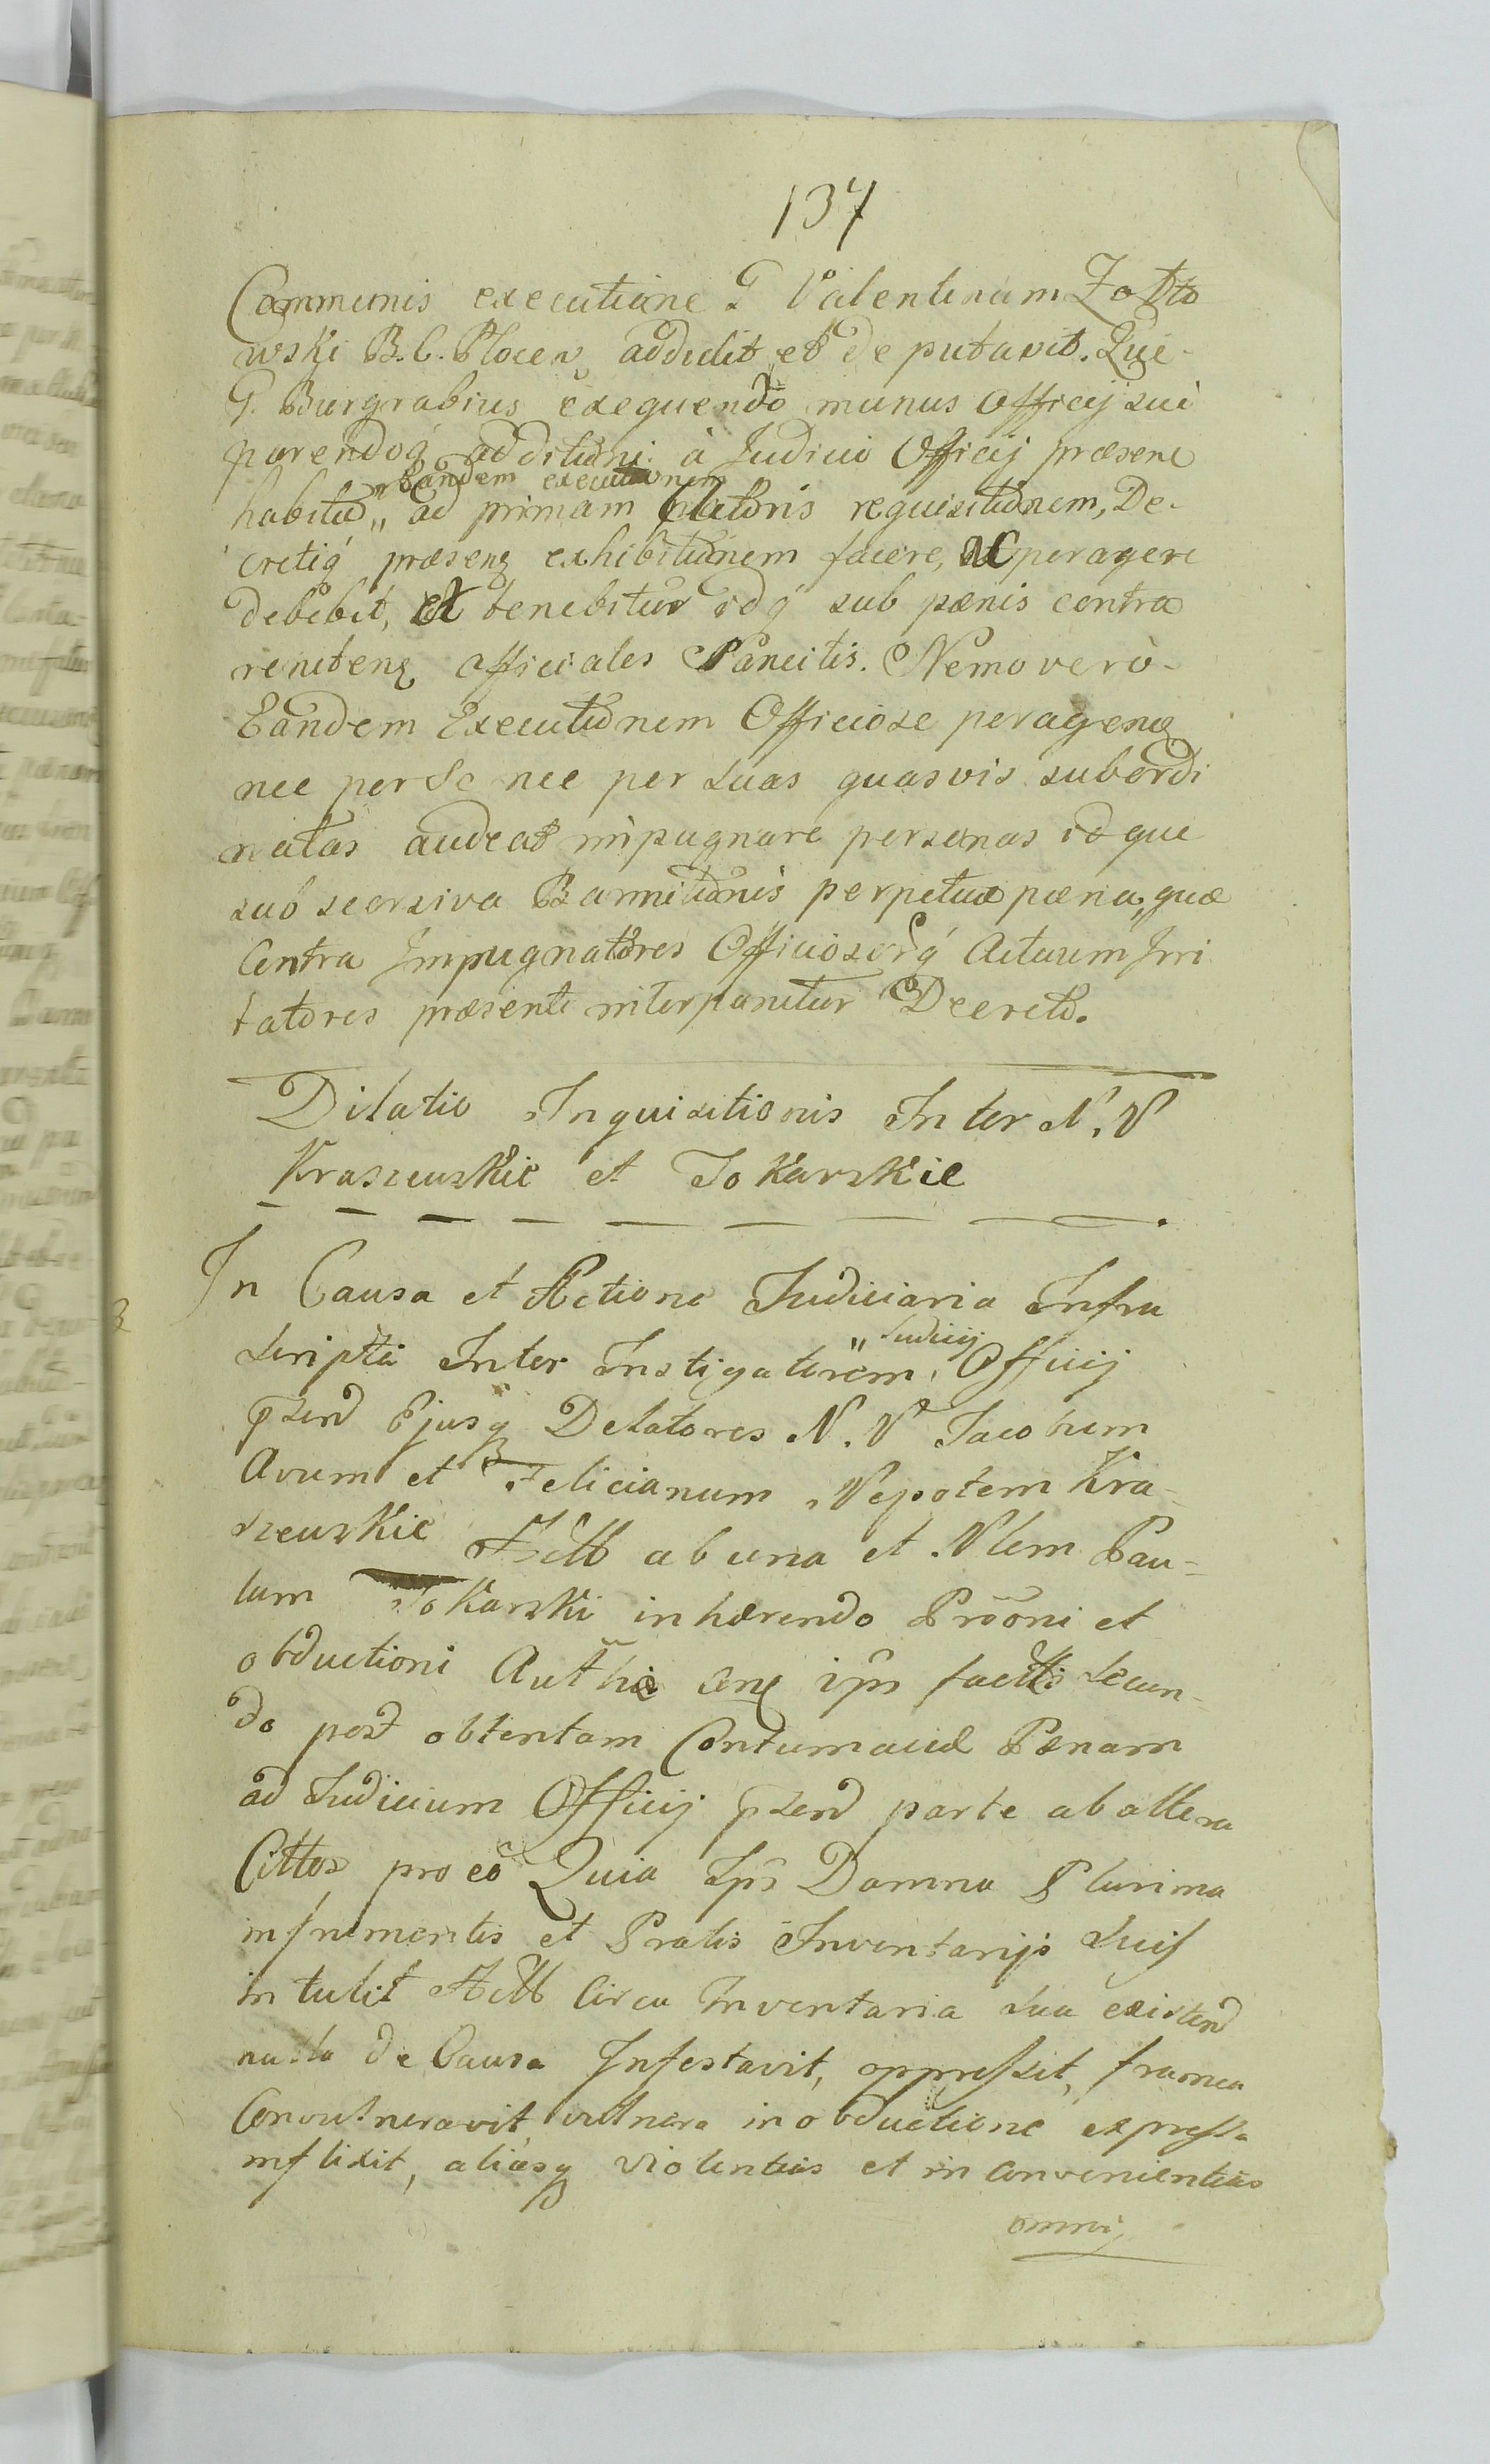 137
Communis executione G Valentinum Zołto
wski B.C. Plocen addidit et deputavit. Qui
G. Burgrabius exequendo munus Officij sui
parendoq additioni à Judicio Officij præsen
habitæ „Eandem executionem
ad primam Actoris requisitionem, De-
cretiq præsenq exhibitionem facere, ac peragere
debebit, et tenebitur idq sub pænis contra
renitenq officiales Sancitis. Nemo verò
Eandem Executionem Officiose peragenq
nec per Se nec per suas quasvis subordi
natas audeat impugnare personas idque
sub secrsiva Bannitionis perpetuæ pæna, quæ
Contra Impugnatores Officiosorq Actuum Irri
tatores præsenti interponitur Decreto.
Dilatio Inquisitionis Inter N. N
Kraszewskie et Tokarskie
In Causa et Actione Judiciaria Infra
scripta Inter Instigatorem, „Judicij Officij
pzend Ejusq Delatores N. N Jacobum
Avum et Felicianum Nepotem Kra-
szewskie Actt ab una et Nlem Pau-
lum Tokarski inhærendo Prooni et
obductioni Authæ cenq ips factæ secun-
do post obtentam Contumaciæ Pænam
ad Judicium Officij pzend parte ab altera
Cittos pro eo Quia Ips Damna Plurima
in frumentis et Pratis Inventarijs suis
intulit Actt Circa Inventaria sua existend
nulla de Causa Infestavit, oppressit, framea
Convulneravit vulnera in obductione expressa
inflixit, aliasq violentias et inconvenientias
omni,